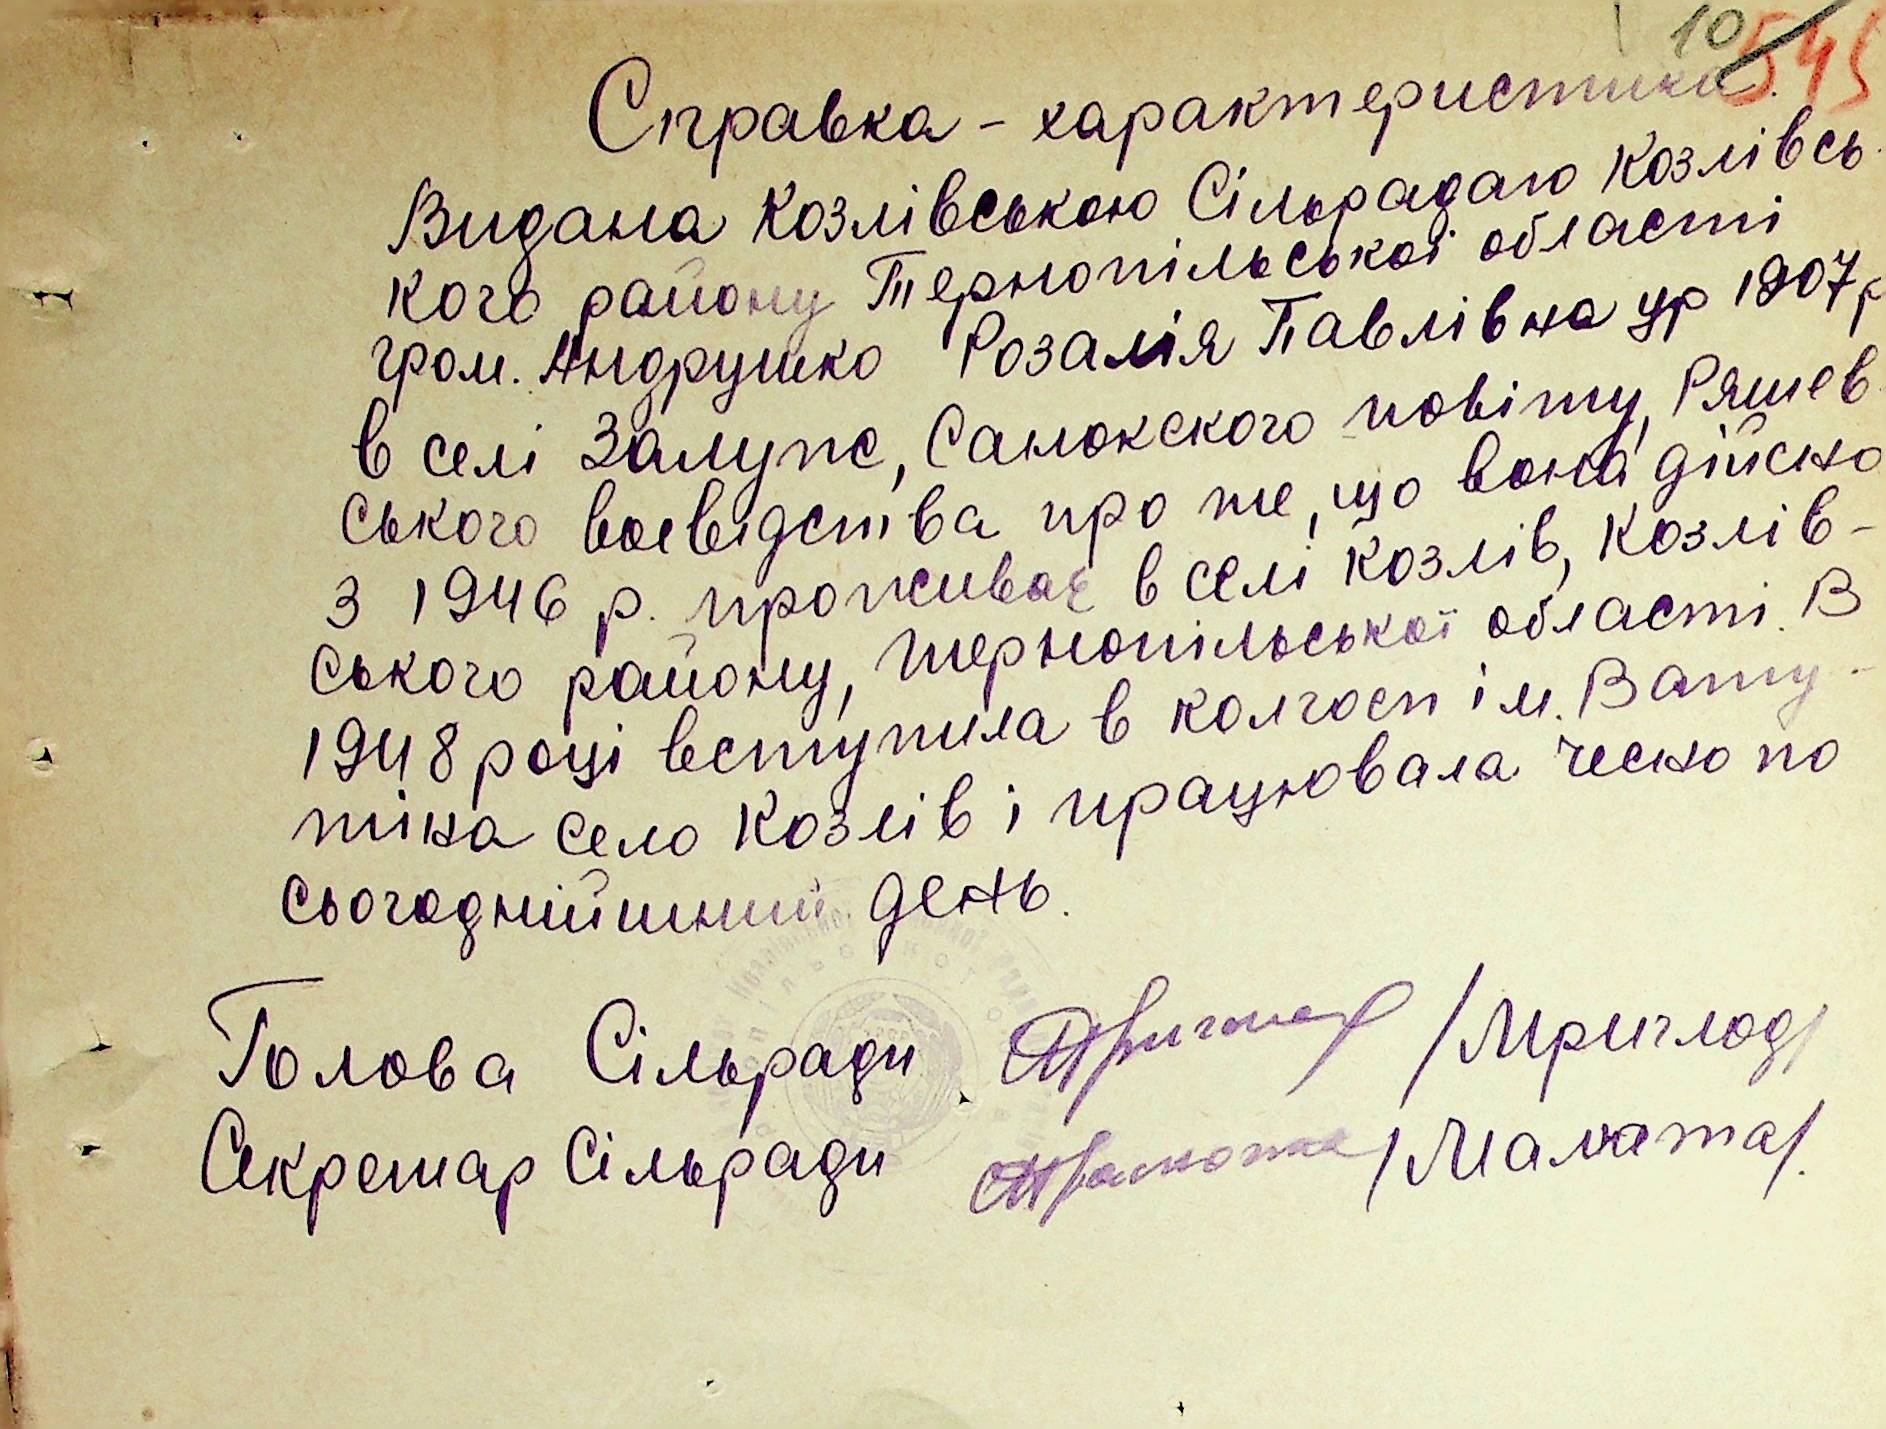 10 545
Справка - характеристика.
Видана Козлівською Сільрадаю Козлівсь-
кого району Тернопільської області
гром. Андрушко Розалія Павлівна ур 1907 р
в селі Залуже, Санокского повіту, Ряшев-
ського воєвідства про те, що вона дійсно
з 1946 р. проживає в селі Козлів, Козлів-
ського району, Тернопільської області. В
1948 році вступила в колгосп ім. Вату-
тіна село Козлів і працювала чесно по
сьогоднійшний день.
Голова Сільради /Мриглод/
Секретар Сільради /Мамата/.